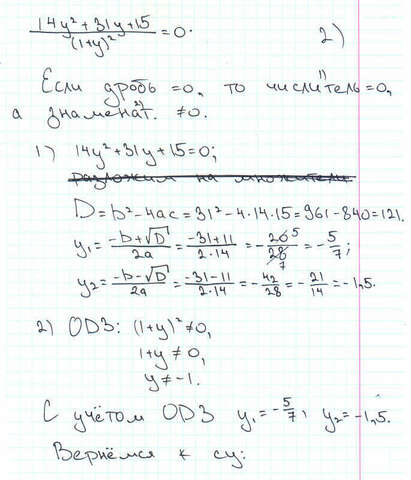 (14y²+31y+15)/(1+y)² = 0.
2)
Если дробь =0, то числитель¹⁾=0,
а знаменат.²⁾ ≠0.
1) 14y²+31y+15=0;
разложим на множители
D=b²-4ac=31²-4·14·15=961-840=121.
y₁=(-b+√D)/2a=(-31+11)/(2·14)=-20⁵/28₇=-5/7;
y₂=(-b-√D)/2a=(-31-11)/(2·14)=-42/28=-21/14=-1,5.
2) ОДЗ: (1+y)²≠0,
1+y≠0,
y≠-1.
С учётом ОДЗ y₁=-5/7, y₂=-1,5.
Вернёмся к су: